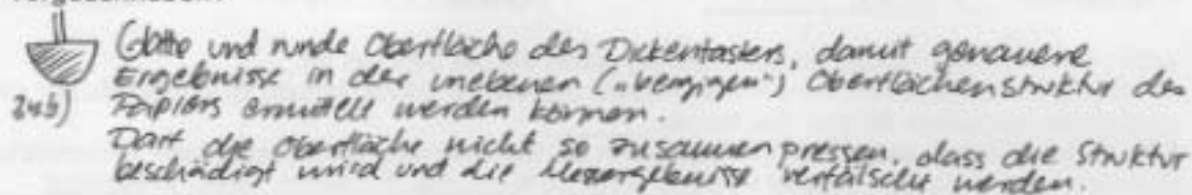 Glatte und runde Oberfläche des Dickentasters, damit genauere
Ergebnisse in der unebenen („bergigen“) Oberflächenstruktur des
zu b) Papiers ermittelt werden können.
Darf die Oberfläche nicht so zusammenpressen, dass die Struktur
beschädigt wird und die Messergebnisse verfälscht werden.